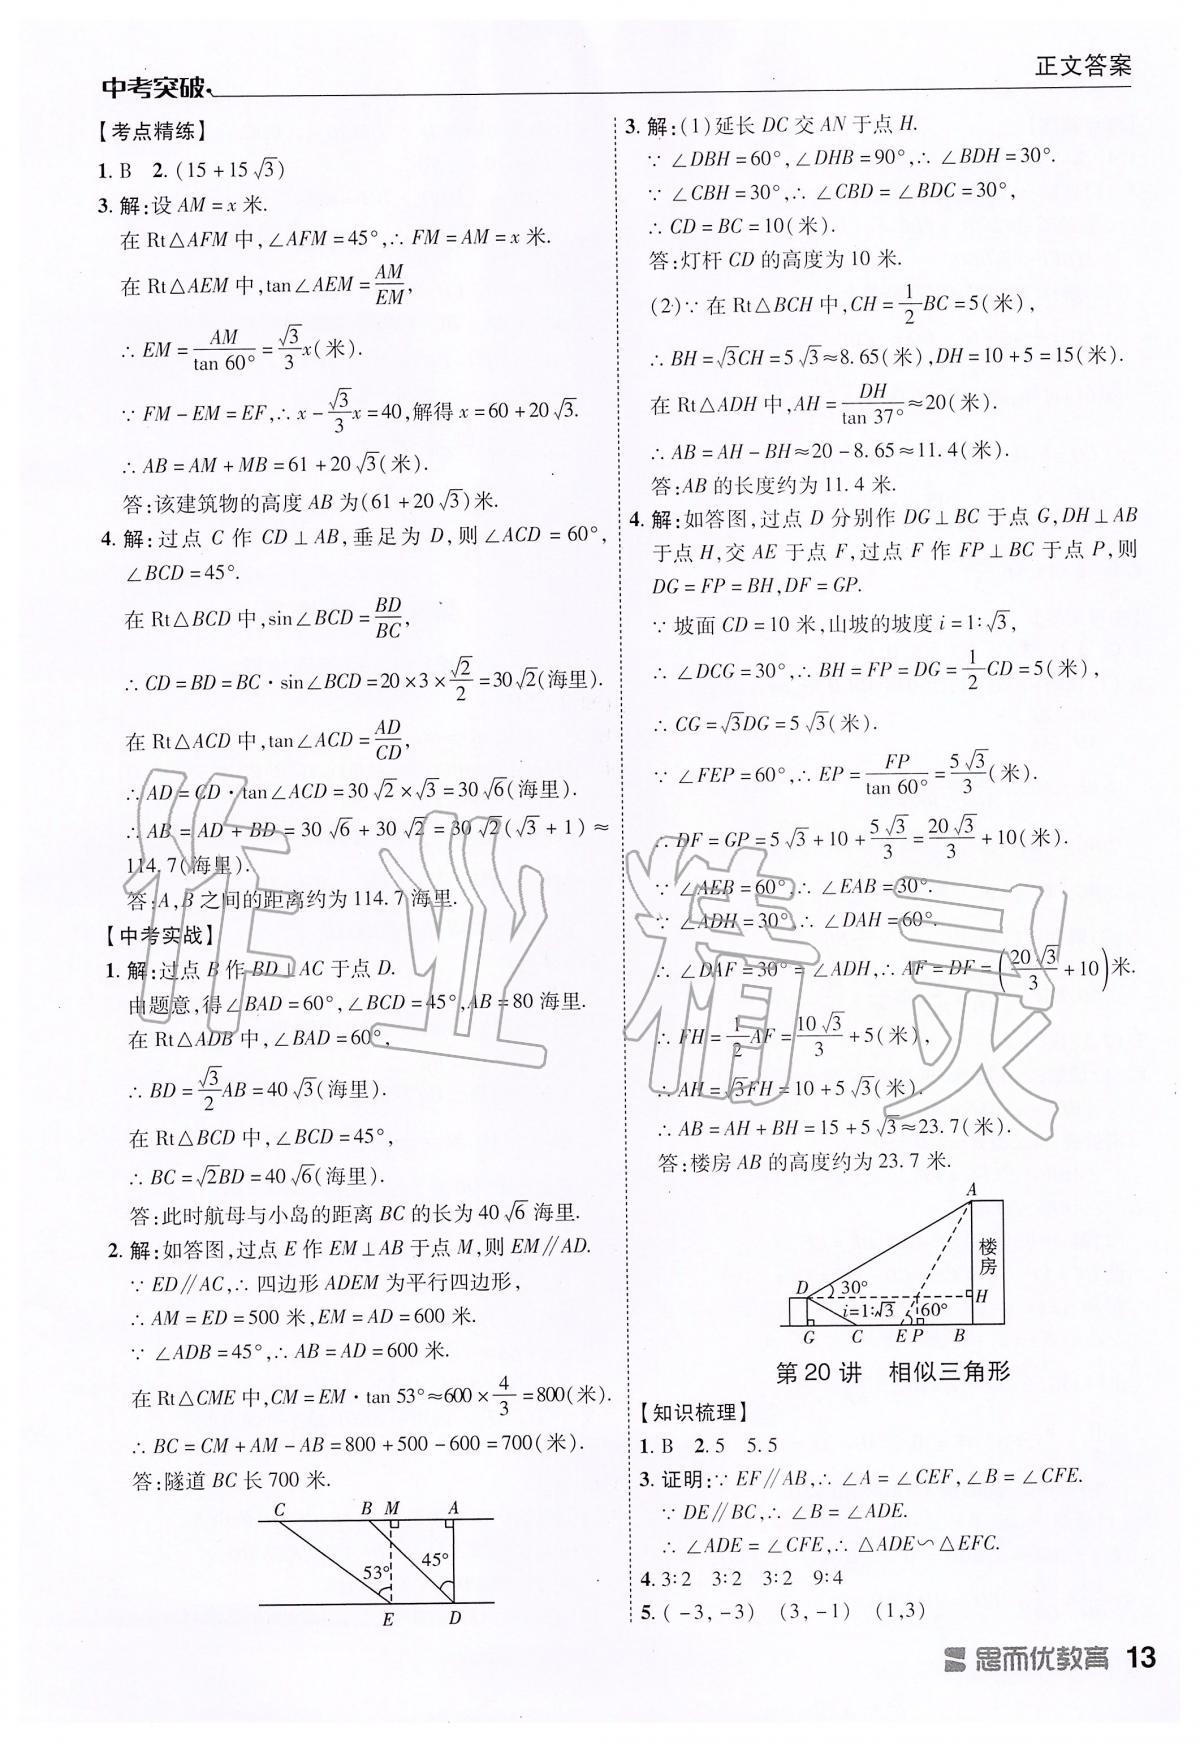 正文答案
中考突破
【考点精练】
1. B 2. (15+15√3)
3. 解:设 AM=x 米.
在 Rt△AFM 中,∠AFM=45°,∴ FM=AM=x 米.
在 Rt△AEM 中,tan∠AEM=AM/EM,
∴ EM=AM/tan 60°=√3/3x(米).
∵ FM-EM=EF,∴ x-√3/3x=40,解得 x=60+20√3.
∴ AB=AM+MB=61+20√3(米).
答:该建筑物的高度 AB 为(61+20√3)米.
4. 解:过点 C 作 CD⊥AB,垂足为 D,则∠ACD=60°,
∠BCD=45°.
在 Rt△BCD 中,sin∠BCD=BD/BC,
∴ CD=BD=BC·sin∠BCD=20×3×√2/2=30√2(海里).
在 Rt△ACD 中,tan∠ACD=AD/CD,
∴ AD=CD·tan∠ACD=30√2×√3=30√6(海里).
∴ AB=AD+BD=30√6+30√2=30√2(√3+1)≈
114.7(海里).
答:A,B 之间的距离约为 114.7 海里.
【中考实战】
1. 解:过点 B 作 BD⊥AC 于点 D.
由题意,得∠BAD=60°,∠BCD=45°,AB=80 海里.
在 Rt△ADB 中,∠BAD=60°,
∴ BD=√3/2AB=40√3(海里).
在 Rt△BCD 中,∠BCD=45°,
∴ BC=√2BD=40√6(海里).
答:此时航母与小岛的距离 BC 的长为 40√6 海里.
2. 解:如答图,过点 E 作 EM⊥AB 于点 M,则 EM∥AD.
∵ ED∥AC,∴ 四边形 ADEM 为平行四边形,
∴ AM=ED=500 米,EM=AD=600 米.
∵ ∠ADB=45°,∴ AB=AD=600 米.
在 Rt△CME 中,CM=EM·tan 53°≈600×4/3=800(米).
∴ BC=CM+AM-AB=800+500-600=700(米).
答:隧道 BC 长 700 米.
C B M A
53° 45°
E D
3. 解:(1)延长 DC 交 AN 于点 H.
∵ ∠DBH=60°,∠DHB=90°,∴ ∠BDH=30°.
∵ ∠CBH=30°,∴ ∠CBD=∠BDC=30°,
∴ CD=BC=10(米).
答:灯杆 CD 的高度为 10 米.
(2)∵ 在 Rt△BCH 中,CH=1/2BC=5(米),
∴ BH=√3CH=5√3≈8.65(米),DH=10+5=15(米).
在 Rt△ADH 中,AH=DH/tan 37°≈20(米).
∴ AB=AH-BH≈20-8.65≈11.4(米).
答:AB 的长度约为 11.4 米.
4. 解:如答图,过点 D 分别作 DG⊥BC 于点 G,DH⊥AB
于点 H,交 AE 于点 F,过点 F 作 FP⊥BC 于点 P,则
DG=FP=BH,DF=GP.
∵ 坡面 CD=10 米,山坡的坡度 i=1:√3,
∴ ∠DCG=30°,∴ BH=FP=DG=1/2CD=5(米),
∴ CG=√3DG=5√3(米).
∵ ∠FEP=60°,∴ EP=FP/tan 60°=5√3/3(米).
∴ DF=GP=5√3+10+5√3/3=20√3/3+10(米).
∵ ∠AEB=60°,∴ ∠EAB=30°.
∵ ∠ADH=30°,∴ ∠DAH=60°.
∴ ∠DAF=30°=∠ADH,∴ AF=DF=(20√3/3+10)米.
∴ FH=1/2AF=10√3/3+5(米),
∴ AH=√3FH=10+5√3(米).
∴ AB=AH+BH=15+5√3≈23.7(米).
答:楼房 AB 的高度约为 23.7 米.
A
楼房
D 30° H
i=1:√3 60°
G C E P B
第 20 讲 相似三角形
【知识梳理】
1. B 2. 5 5.5
3. 证明:∵ EF∥AB,∴ ∠A=∠CEF,∠B=∠CFE.
∵ DE∥BC,∴ ∠B=∠ADE.
∴ ∠ADE=∠CFE,∴ △ADE∽△EFC.
4. 3:2 3:2 3:2 9:4
5. (-3,-3) (3,-1) (1,3)
思而优教育 13
作业精灵